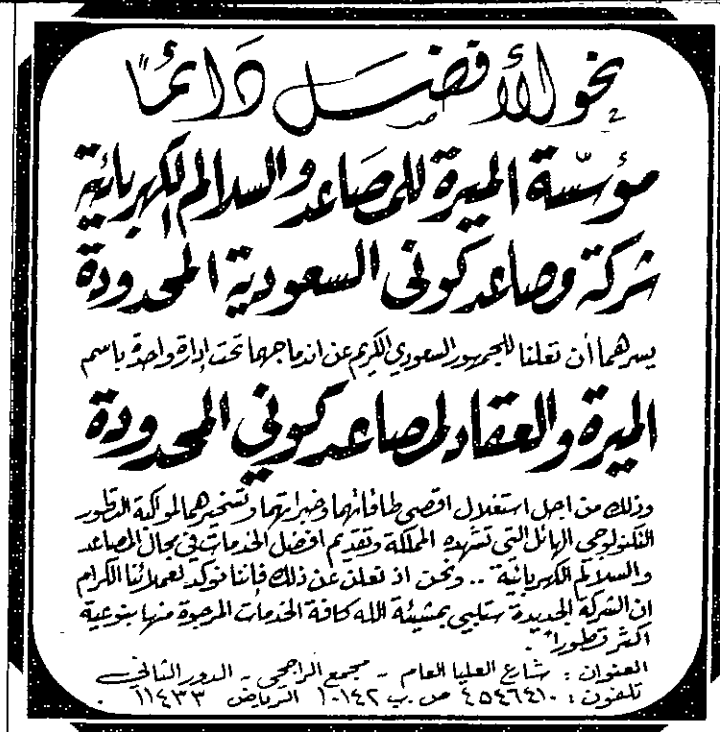 نحو الأفضل دائماً
مؤسّسة الميرة للمصاعد والسلالم الكهربائية
شركة مصاعد كوني السعودية المحدودة
يسرهما أن تعلنا للجمهور السعودي الكريم عن اندماجهما تحت إدارة واحدة باسم
الميرة والعقاد لمصاعد كوني المحدودة
وذلك من اجل استغلال اقصى طاقاتهما وخبراتهما وتسخيرهما لمواكبة التطور
التكنولوجي الهائل التي تشهده المملكة وتقديم افضل الخدمات في مجال المصاعد
والسلالم الكهربائية .. ونحن اذ نعلن عن ذلك فإننا نؤكد لعملائنا الكرام
ان الشركة الجديدة ستلبي بمشيئة الله كافة الخدمات المرجوة منها بنوعية
اكثر تطوراً .
العنوان : شارع العليا العام - مجمع الراجحي - الدور الثاني
تلفون : ٤٥٤٦٤١٠ ص . ب ١٠١٤٢ الرياض ١١٤٣٣